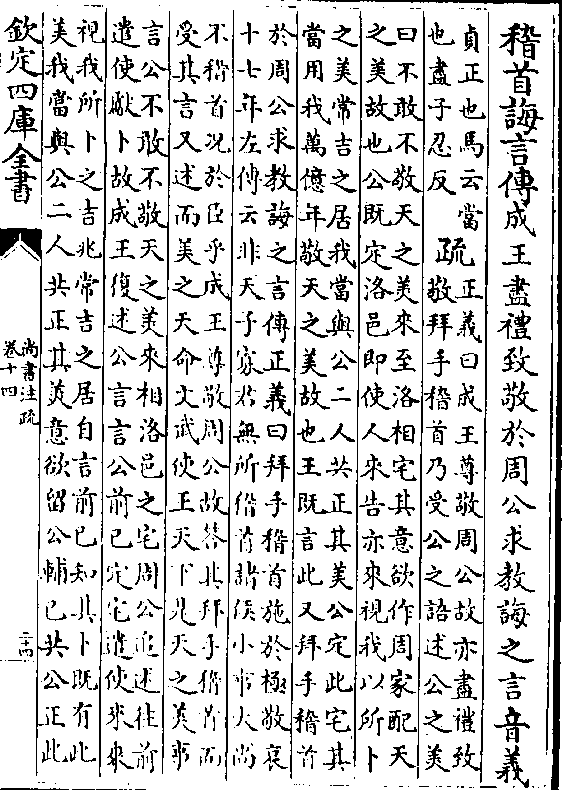 稽首誨言傳成王盡禮致敬於周公求教誨之言音義
貞正也馬云當
也盡子忍反
疏
正義曰成王尊敬周公故亦盡禮致
敬拜手稽首乃受公之誥述公之美
曰不敢不敬天之美來至洛相宅其意欲作周家配天
之美故也公既定洛邑即使人來告亦來視我以所卜
之美常吉之居我當與公二人共正其美公定此宅其
當用我萬億年敬天之美故也王既言此又拜手稽首
於周公求教誨之言傳正義曰拜手稽首施於極敬哀
十七年左傳云非天子寡君無所稽首諸侯小事大尚
不稽首况於臣乎成王尊敬周公故荅其拜手稽首而
受其言又述而美之天命文武使王天下是天之美事
言公不敢不敬天之美來相洛邑之宅周公追述往前
遣使獻卜故成王復述公言言公前已定宅遣使來來
視我所卜之吉兆常吉之居自言前已知其卜既有此
美我當與公二人共正其美意欲留公輔已共公正此
欽定四庫全書
尚書注疏
卷十四
二十四